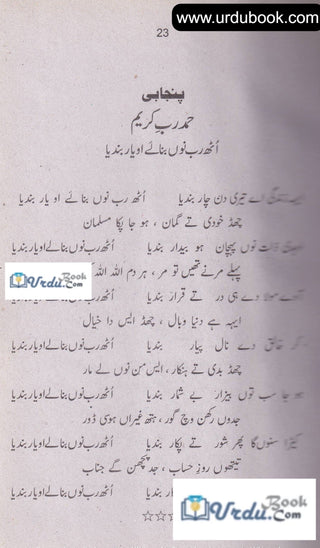 www.urdubook.com
23
پنجابی
حمد ربِ کریم
اُٹھ رب نوں بنالے او یار بندیا
اے تیری دن چار بندیا اُٹھ رب نوں بنالے او یار بندیا
چھڈ خودی تے گمان ، ہو جا پکا مسلمان
ذات نوں پہچان ہو بیدار بندیا اُٹھ رب نوں بنالے او یار بندیا
پہلے مرنے تھیں تو مر ، ہر دم اللہ اللہ
UrduBook.Com
مولا دے ہی در تے قرار بندیا اُٹھ رب نوں بنالے او یار بندیا
ایہہ ہے دنیا وبال ، چھڈ ایس دا خیال
کر خالق دے نال پیار بندیا اُٹھ رب نوں بنالے او یار بندیا
چھڈ بدی تے ہنکار ، ایس من نوں لے مار
ہو جا سب توں بیزار بے شمار بندیا اُٹھ رب نوں بنالے او یار بندیا
جدوں رکھن وچ گور ، ہتھ غیراں ہوسی ڈور
کیڑا سنوں گا پھر شور تے پکار بندیا اُٹھ رب نوں بنالے او یار بندیا
تیتھوں روزِ حساب ، جد پچھن گے جناب
بندیا اُٹھ رب نوں بنالے او یار بندیا
☆☆
UrduBook.Com